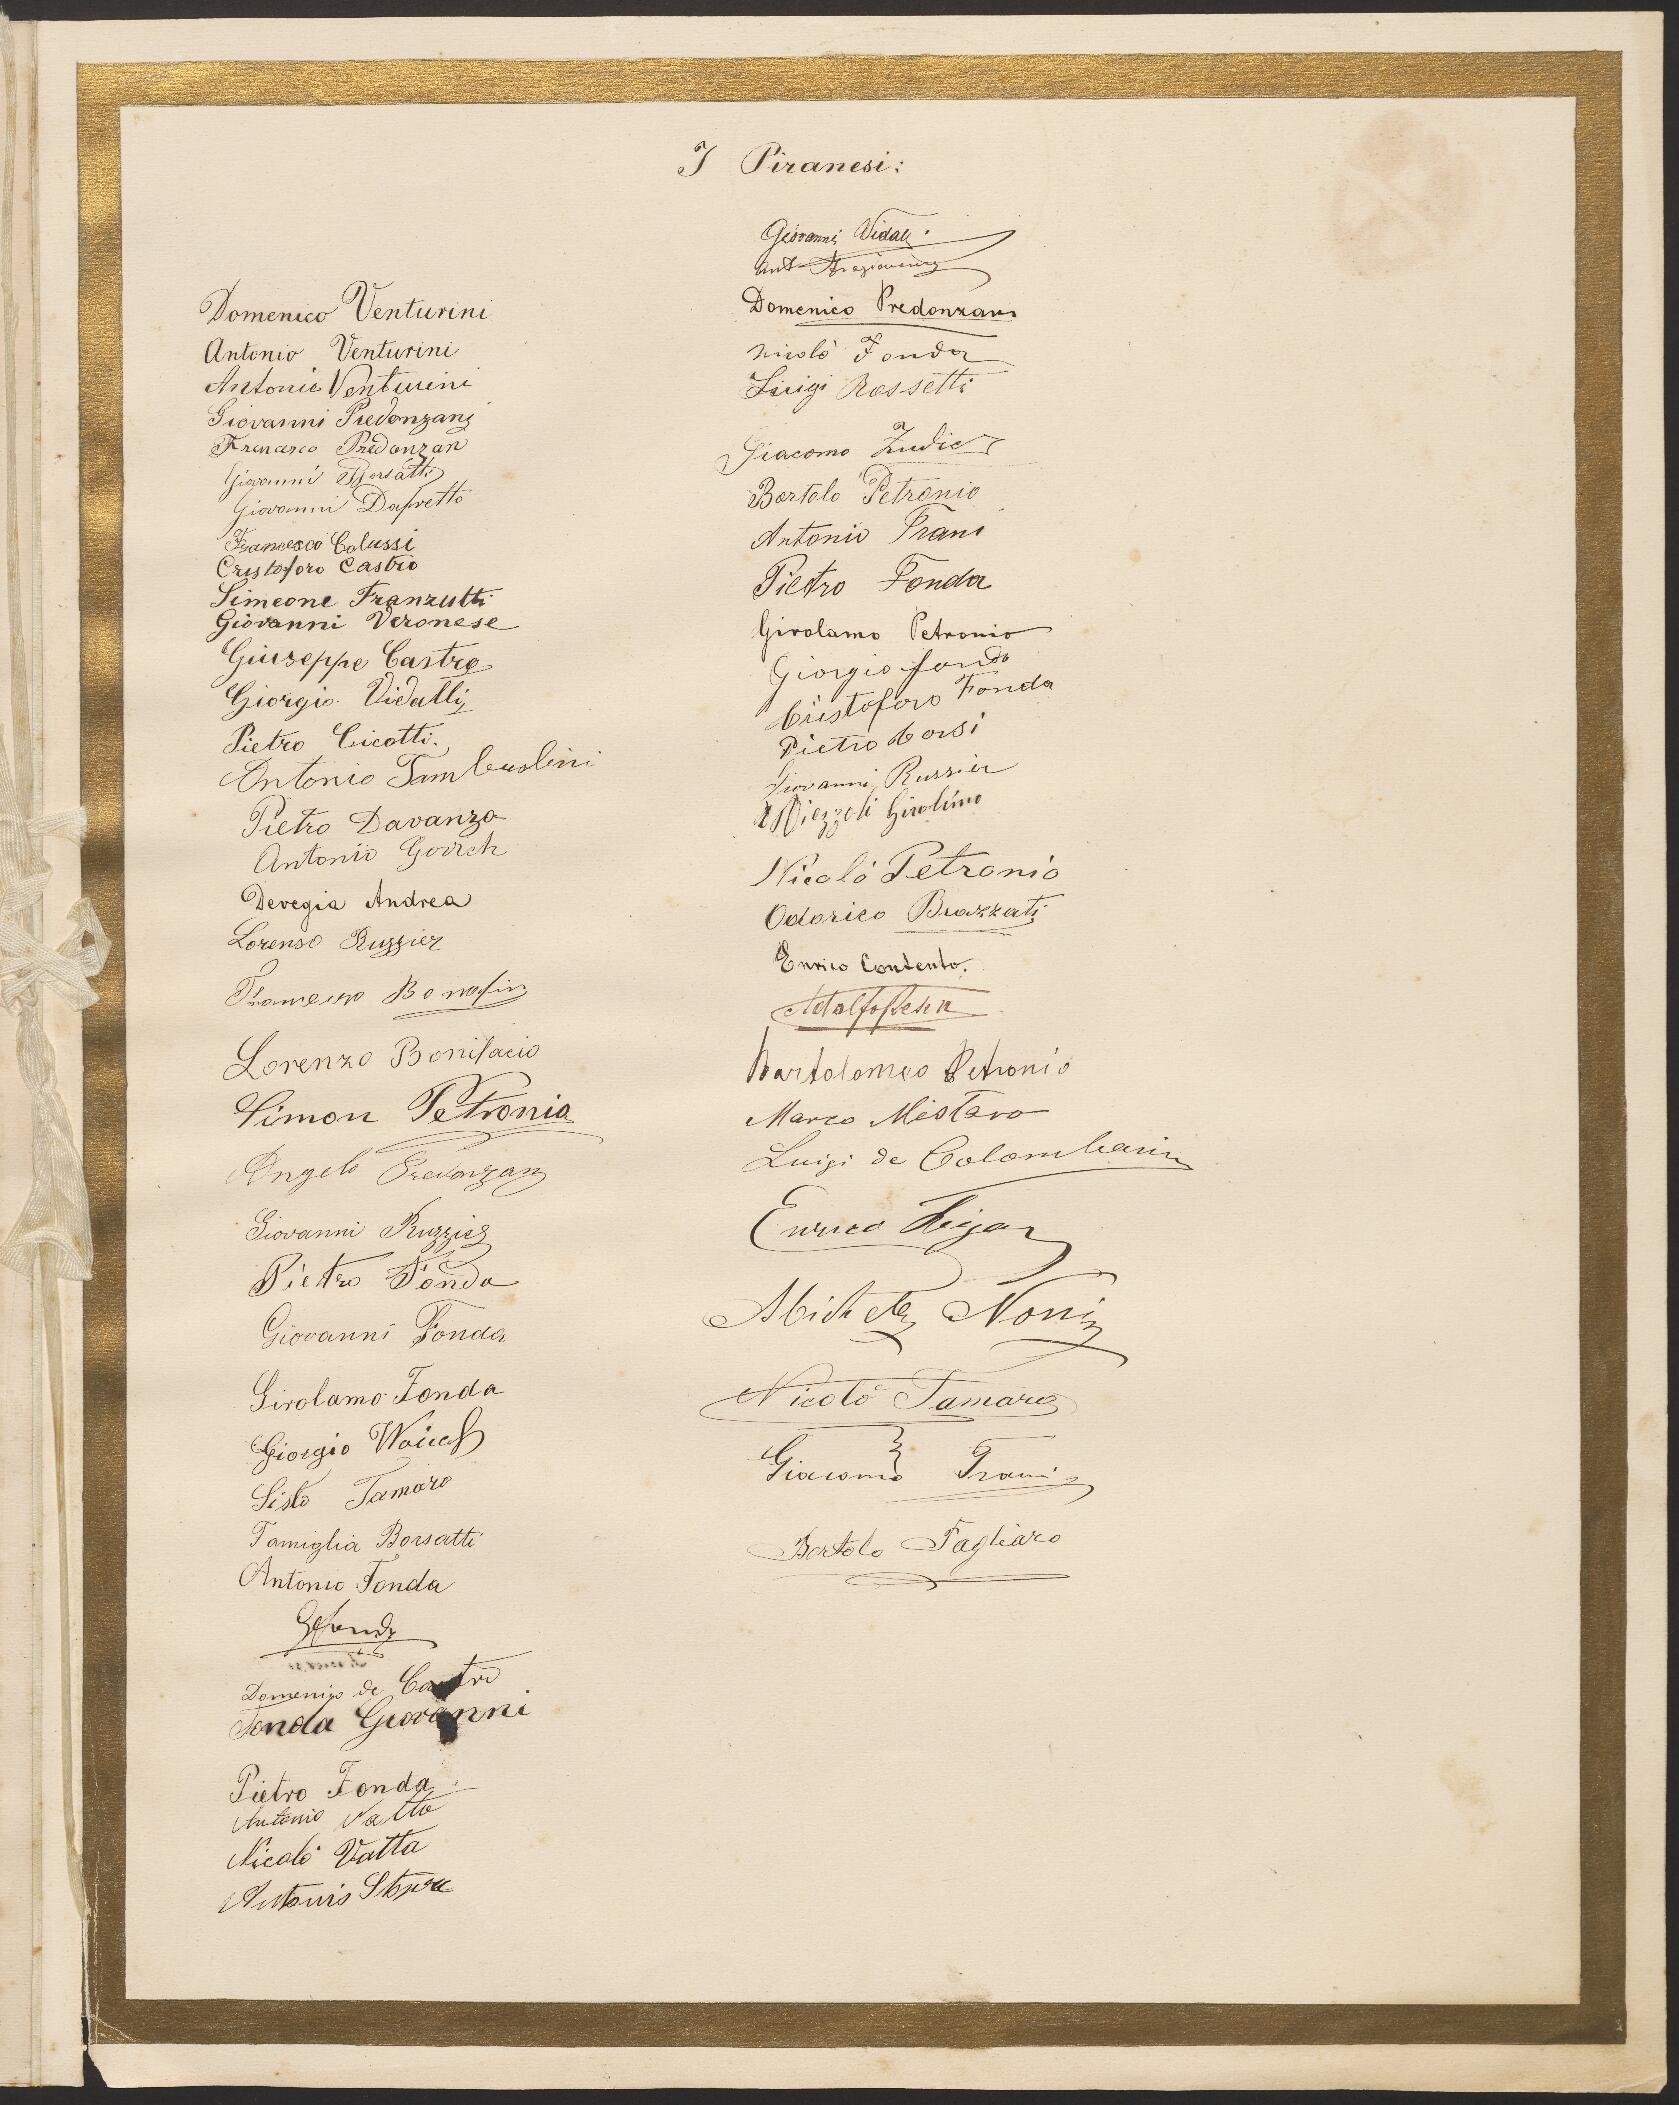 I Piranesi:
Domenico Venturini
Antonio Venturini
Antonio Venturini
Giovanni Predonzani
Francesco Predonzan
Giovanni Borsatti
Giovanni Dapretto
Francesco Colussi
Cristoforo Castro
Simeone Franzutti
Giovanni Veronese
Giuseppe Castro
Giorgio Vidalli
Pietro Cicotti.
Antonio Tamburlini
Pietro Davanzo
Antonio
Devegia Andrea
Lorenso Ruzzier
Francesco
Lorenzo Bonifacio
Simon Petronio
Angelo Predonzan
Giovanni Ruzzier
Pietro Fonda
Giovanni Fonda
Girolamo Fonda
Giorgio
Sisto Tamaro
Famiglia Borsatti
Antonio Fonda
Domenico de Castro
Fonda Giovanni
Pietro Fonda
Antonio Vatta
Nicolò Vatta
Antonio
Giovanni Vidali
Ant
Domenico Predonzan
Nicolò Fonda
Luigi Rossetti
Giacomo Zudic
Bortolo Petronio
Antonio Trani
Pietro Fonda
Girolamo Petronio
Giorgio fonda
Cristoforo Fonda
Pietro Corsi
Giovanni Russier
Girolimo
Nicolò Petronio
Odorico Brazzati
Enrico Contento.
Bartolomeo Petronio
Marco Mistaro
Luigi de Colombani
Enrico
Nicolò Tamaro
Giacomo Trani
Bortolo Tagliaro